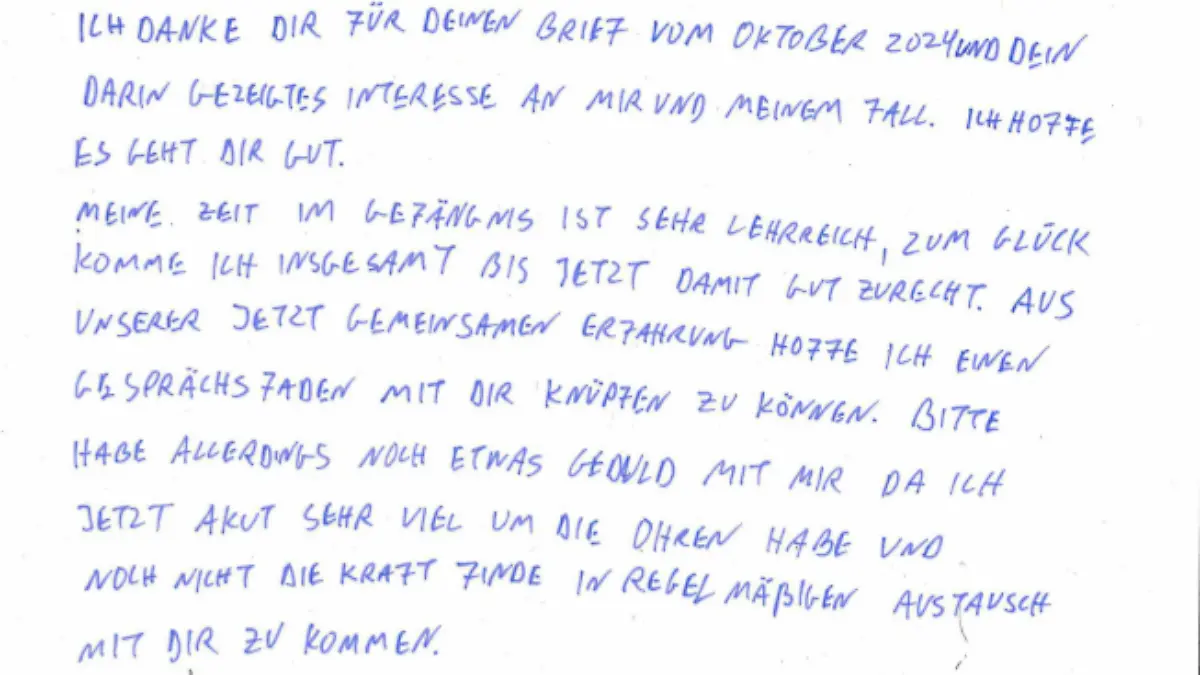 ICH DANKE DIR FÜR DEINEN BRIEF VOM OKTOBER 2024 UND DEIN
DARIN GEZEIGTES INTERESSE AN MIR UND MEINEM FALL. ICH HOFFE
ES GEHT DIR GUT.
MEINE ZEIT IM GEFÄNGNIS IST SEHR LEHRREICH, ZUM GLÜCK
KOMME ICH INSGESAMT BIS JETZT DAMIT GUT ZURECHT. AUS
UNSERER JETZT GEMEINSAMEN ERFAHRUNG HOFFE ICH EINEN
GESPRÄCHSFADEN MIT DIR KNÜPFEN ZU KÖNNEN. BITTE
HABE ALLERDINGS NOCH ETWAS GEDULD MIT MIR DA ICH
JETZT AKUT SEHR VIEL UM DIE OHREN HABE UND
NOCH NICHT DIE KRAFT FINDE IN REGELMÄßIGEN AUSTAUSCH
MIT DIR ZU KOMMEN.